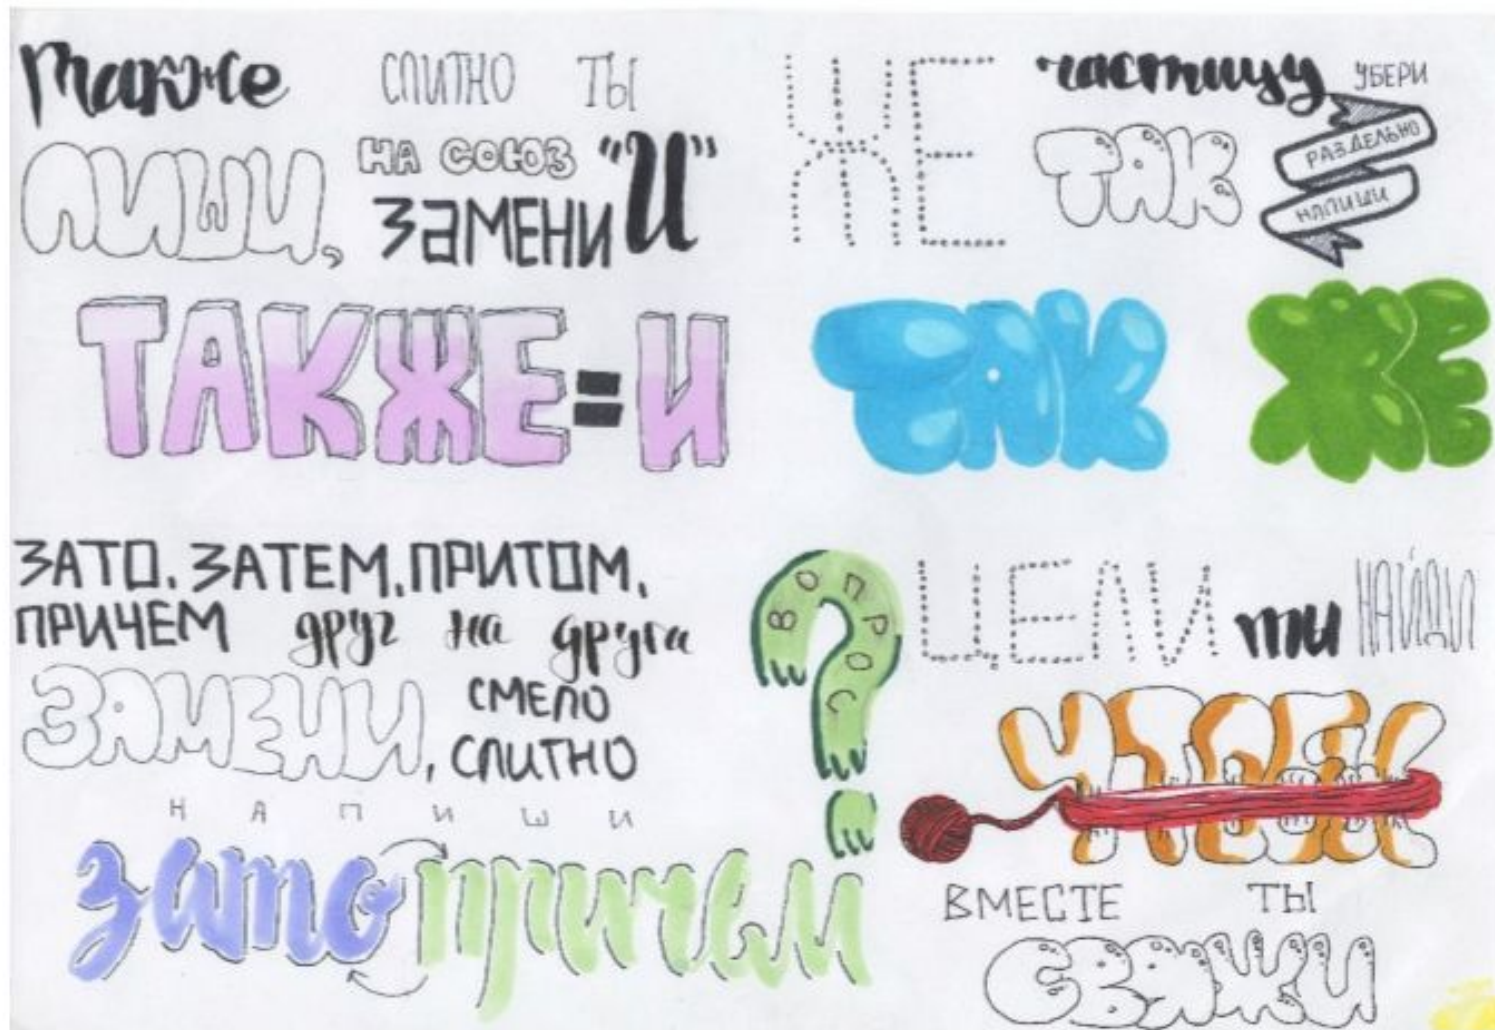 также слитно ты
пиши, на союз "И"
замени
ТАКЖЕ=И
ЖЕ частицу убери
ТАК раздельно
напиши
ТАК ЖЕ
ЗАТО, ЗАТЕМ, ПРИТОМ,
ПРИЧЕМ друг на друга
ЗАМЕНИ, СМЕЛО
СЛИТНО
НАПИШИ
зато причем
ВОПРОС
ЦЕЛИ ты НАЙДИ
ЧТОБЫ
ВМЕСТЕ ТЫ
СВЯЖИ